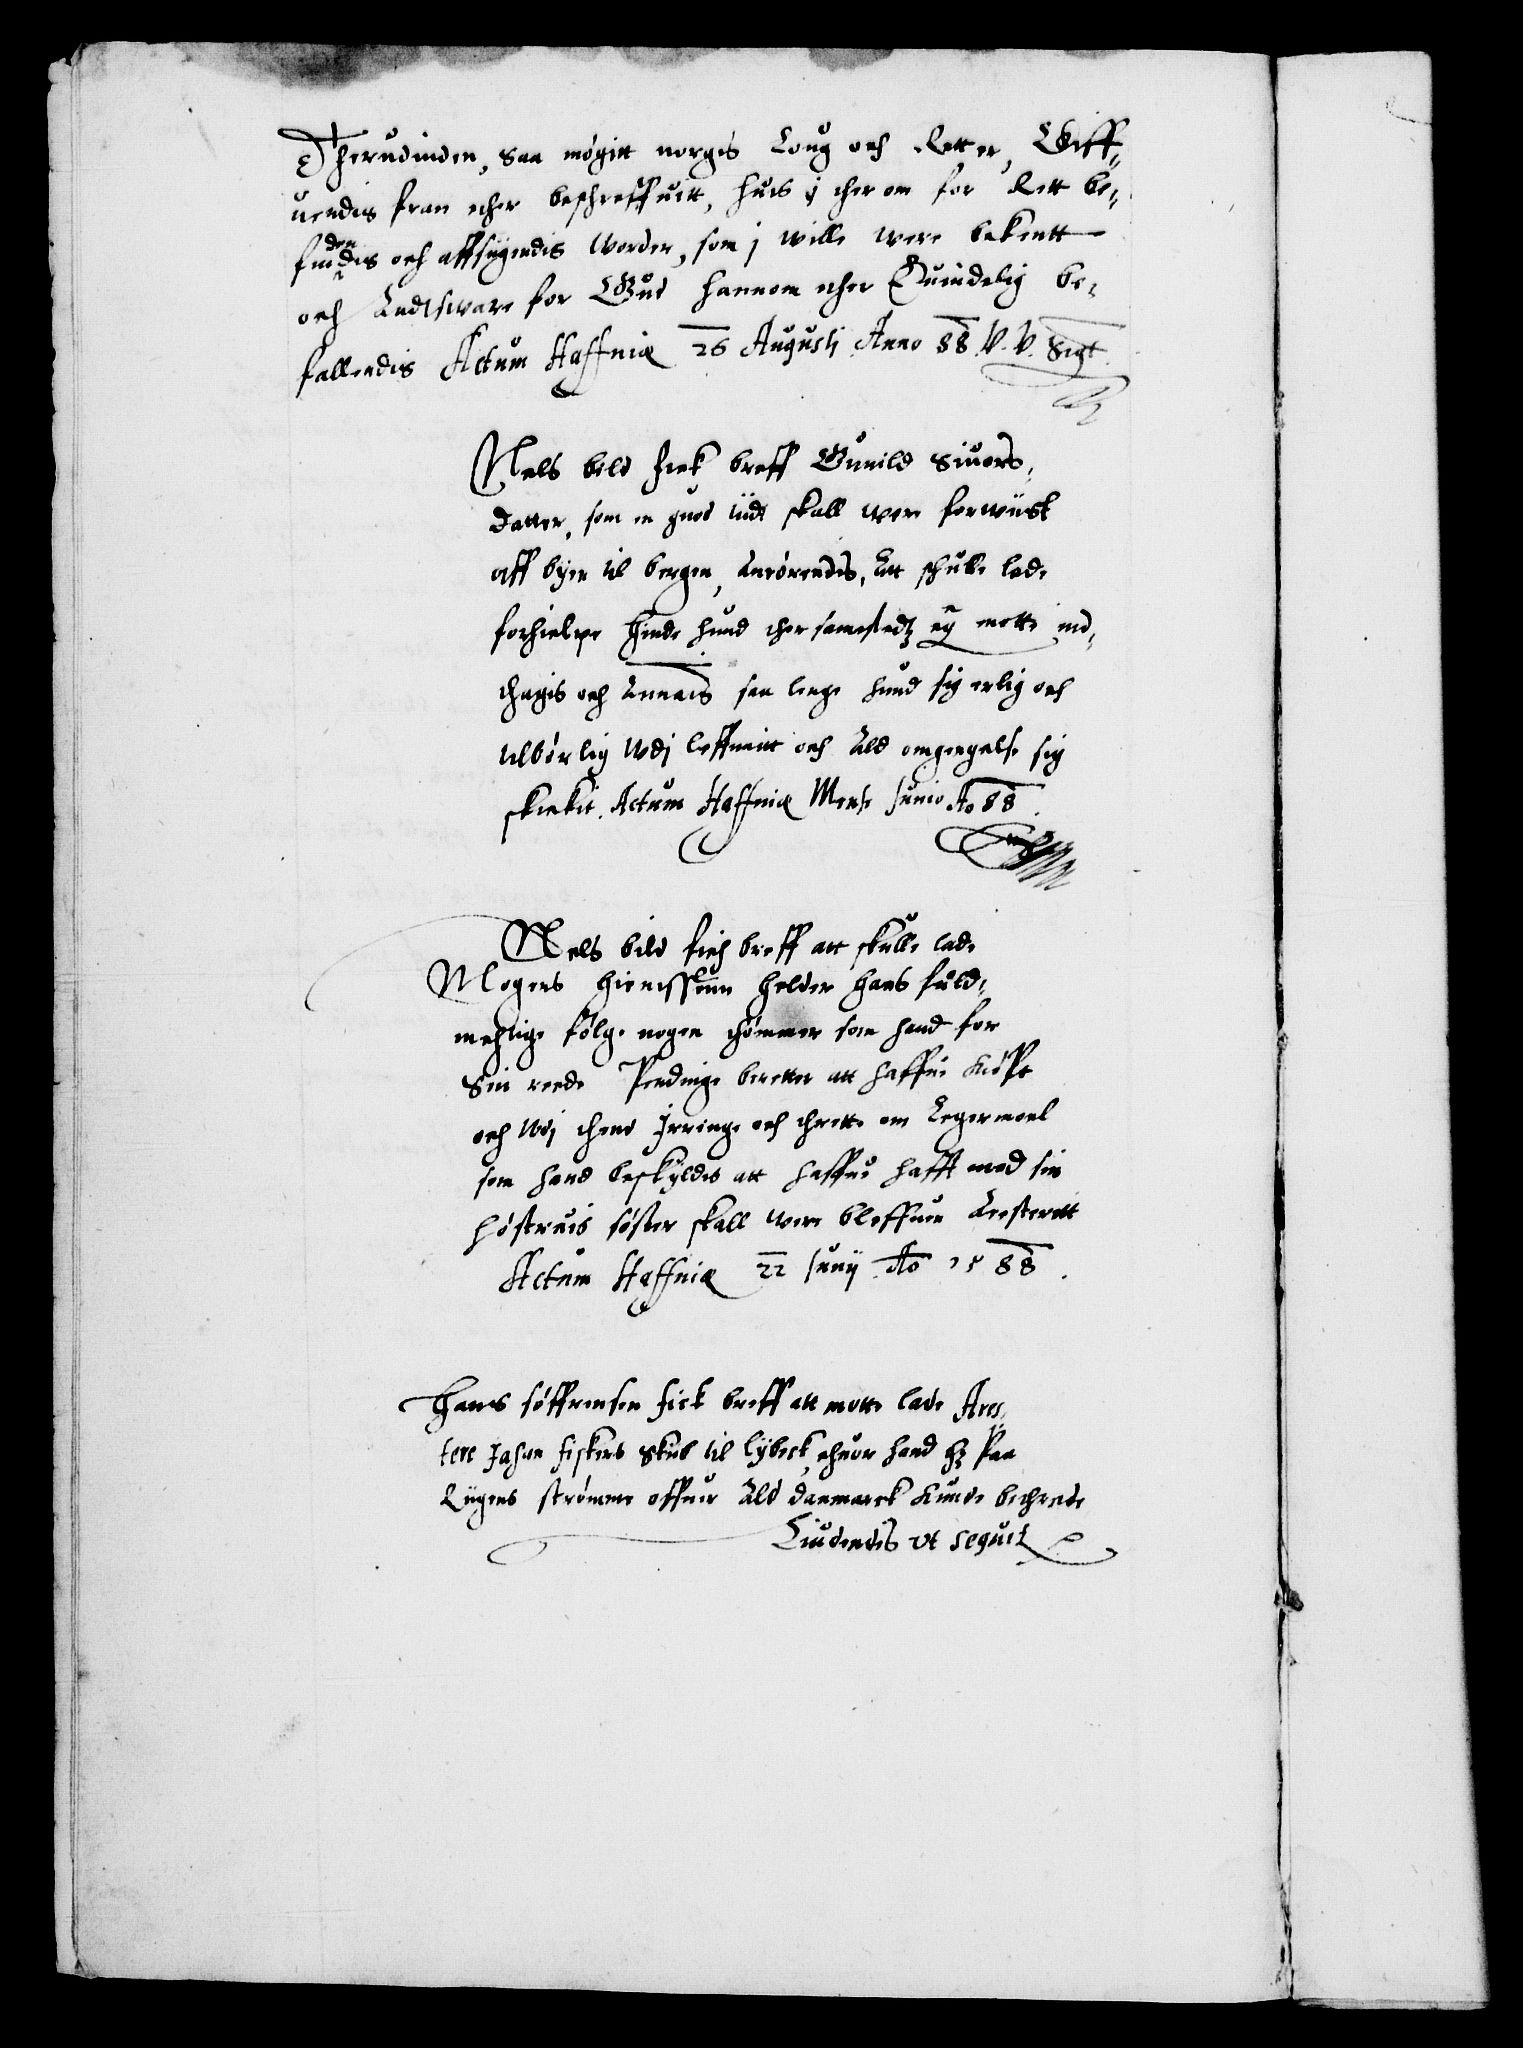 Therudinden, saa møgitt norgis Loug och Retter, Giff,,
uendis fran ether beschreffuitt, huis i ther om for Rett be,,
findendis och affsigendis worder, som j wille were bekentt
och Andtsware for Gud hannom ether Quindelig be,
fallendis Actum Haffniæ 26 Augusti Anno 88 V. V. Sigt
Nels bild Fick breff Gunild Siuers,
datter, som en guod tiidt skall were forwiist
aff byen til bergen, Anrørendis, Att schulle lade
forhielpe hinde hund ther samestedtz eÿ motte ind,
thagis och Annammis saa lenge hund sig erlig och
tilbørlig wdj leffnitt och Ald omgengelse sig
skickit. Actum Haffniæ Mense Junio Ao 88.
Nels bild fich breff att skulle lade
Mogens hienissenn heller hans fuld,
mechtige følge nogen thømmer som hand for
Sin reede Pendinge beretter att haffue kiøpt
och wdj thend Irringe och thrette om Legermoel
som hand beskyldis att haffue hafft med sin
høstruis søster skall were bleffuen Aresterett
Actum Haffniæ 22 Junij Ao 1588.
Hans søffrensen fick breff att motte lade Ares,
tere Johan fiskers Skib til lybeck, ehuor hand thz paa
Rügens strømme offuer Ald danmarck kunde bethrede
Liudendis vt seguit